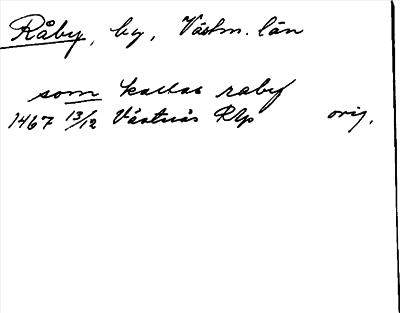 Råby, by, Västm. län
som kallas raby
1467 13/12 Västerås RAp orig.